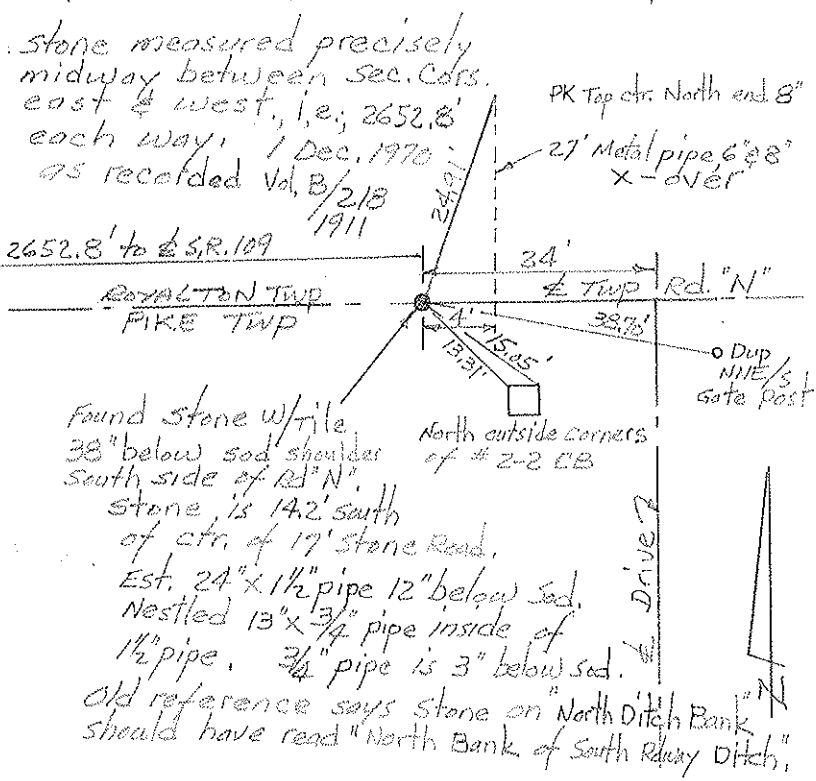 Stone measured precisely
midway between Sec. Cors.
east & west., i.e., 2652.8'
each way. 1 Dec. 1970
as recorded Vol. B/218
1911
PK Top ctr. North end 8"
27' Metal pipe, 6" & 8"
X-over
24.91'
2652.8' to ℄ S.R. 109
34'
℄ Twp Rd. "N"
ROYALTON TWP
PIKE TWP
4'
38.76'
15.05'
13.31'
Dup
NHE/S
Gate Post
Found stone W/Tile
38" below sod shoulder
South side of Rd "N"
Stone is 14.2' south
of ctr. of 17' Stone Road.
North outside corners
of # 2-2 CB
Est. 24" X 1½" pipe 12" below Sod.
Nestled 13" X ¾" pipe inside of
1½" pipe. ¾" pipe is 3" below sod.
℄ Drive
N
Old reference says Stone on "North Ditch Bank"
should have read "North Bank of South R/way Ditch".